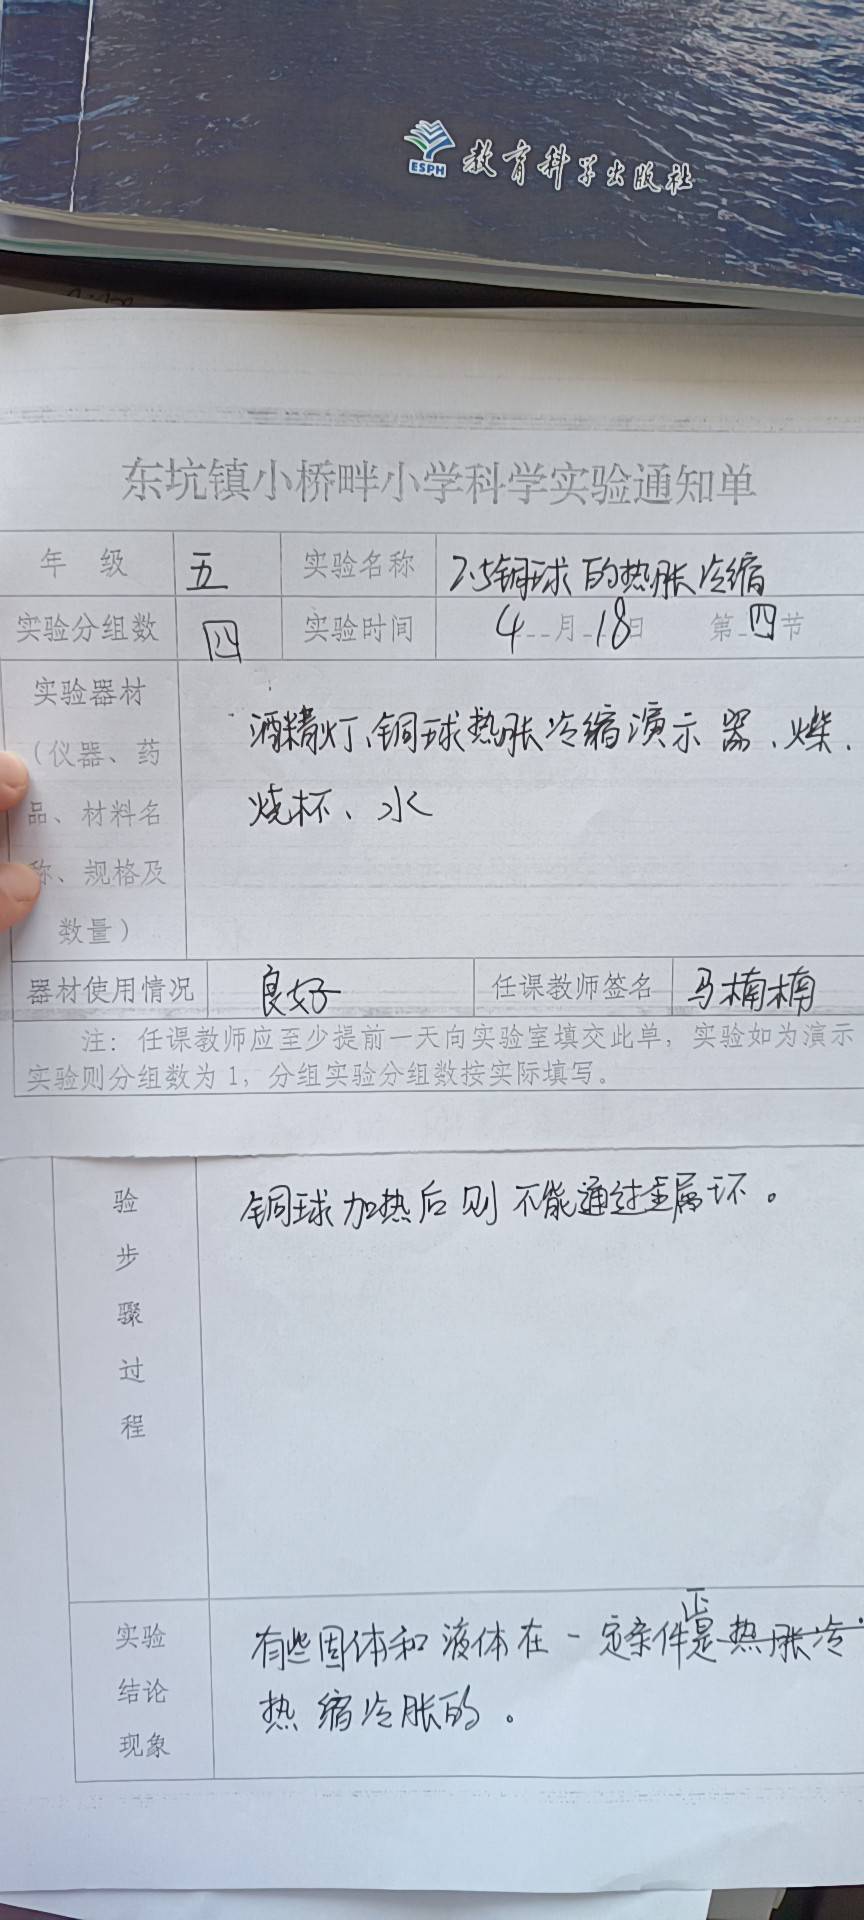 ESPH 教育科学出版社
东坑镇小桥畔小学科学实验通知单
年 级 五 实验名称 2.5铜球的热胀冷缩
实验分组数 四 实验时间 4月18日 第四节
实验器材
（仪器、药
品、材料名
称、规格及
数量）
酒精灯、铜球热胀冷缩演示器、火柴、
烧杯、水
器材使用情况 良好 任课教师签名 马楠楠
注：任课教师应至少提前一天向实验室填交此单，实验如为演示
实验则分组数为1，分组实验分组数按实际填写。
验
步
骤
过
程
铜球加热后则不能通过金属环。
实验
结论
现象
有些固体和液体在一定条件正是热胀冷
热缩冷胀的。